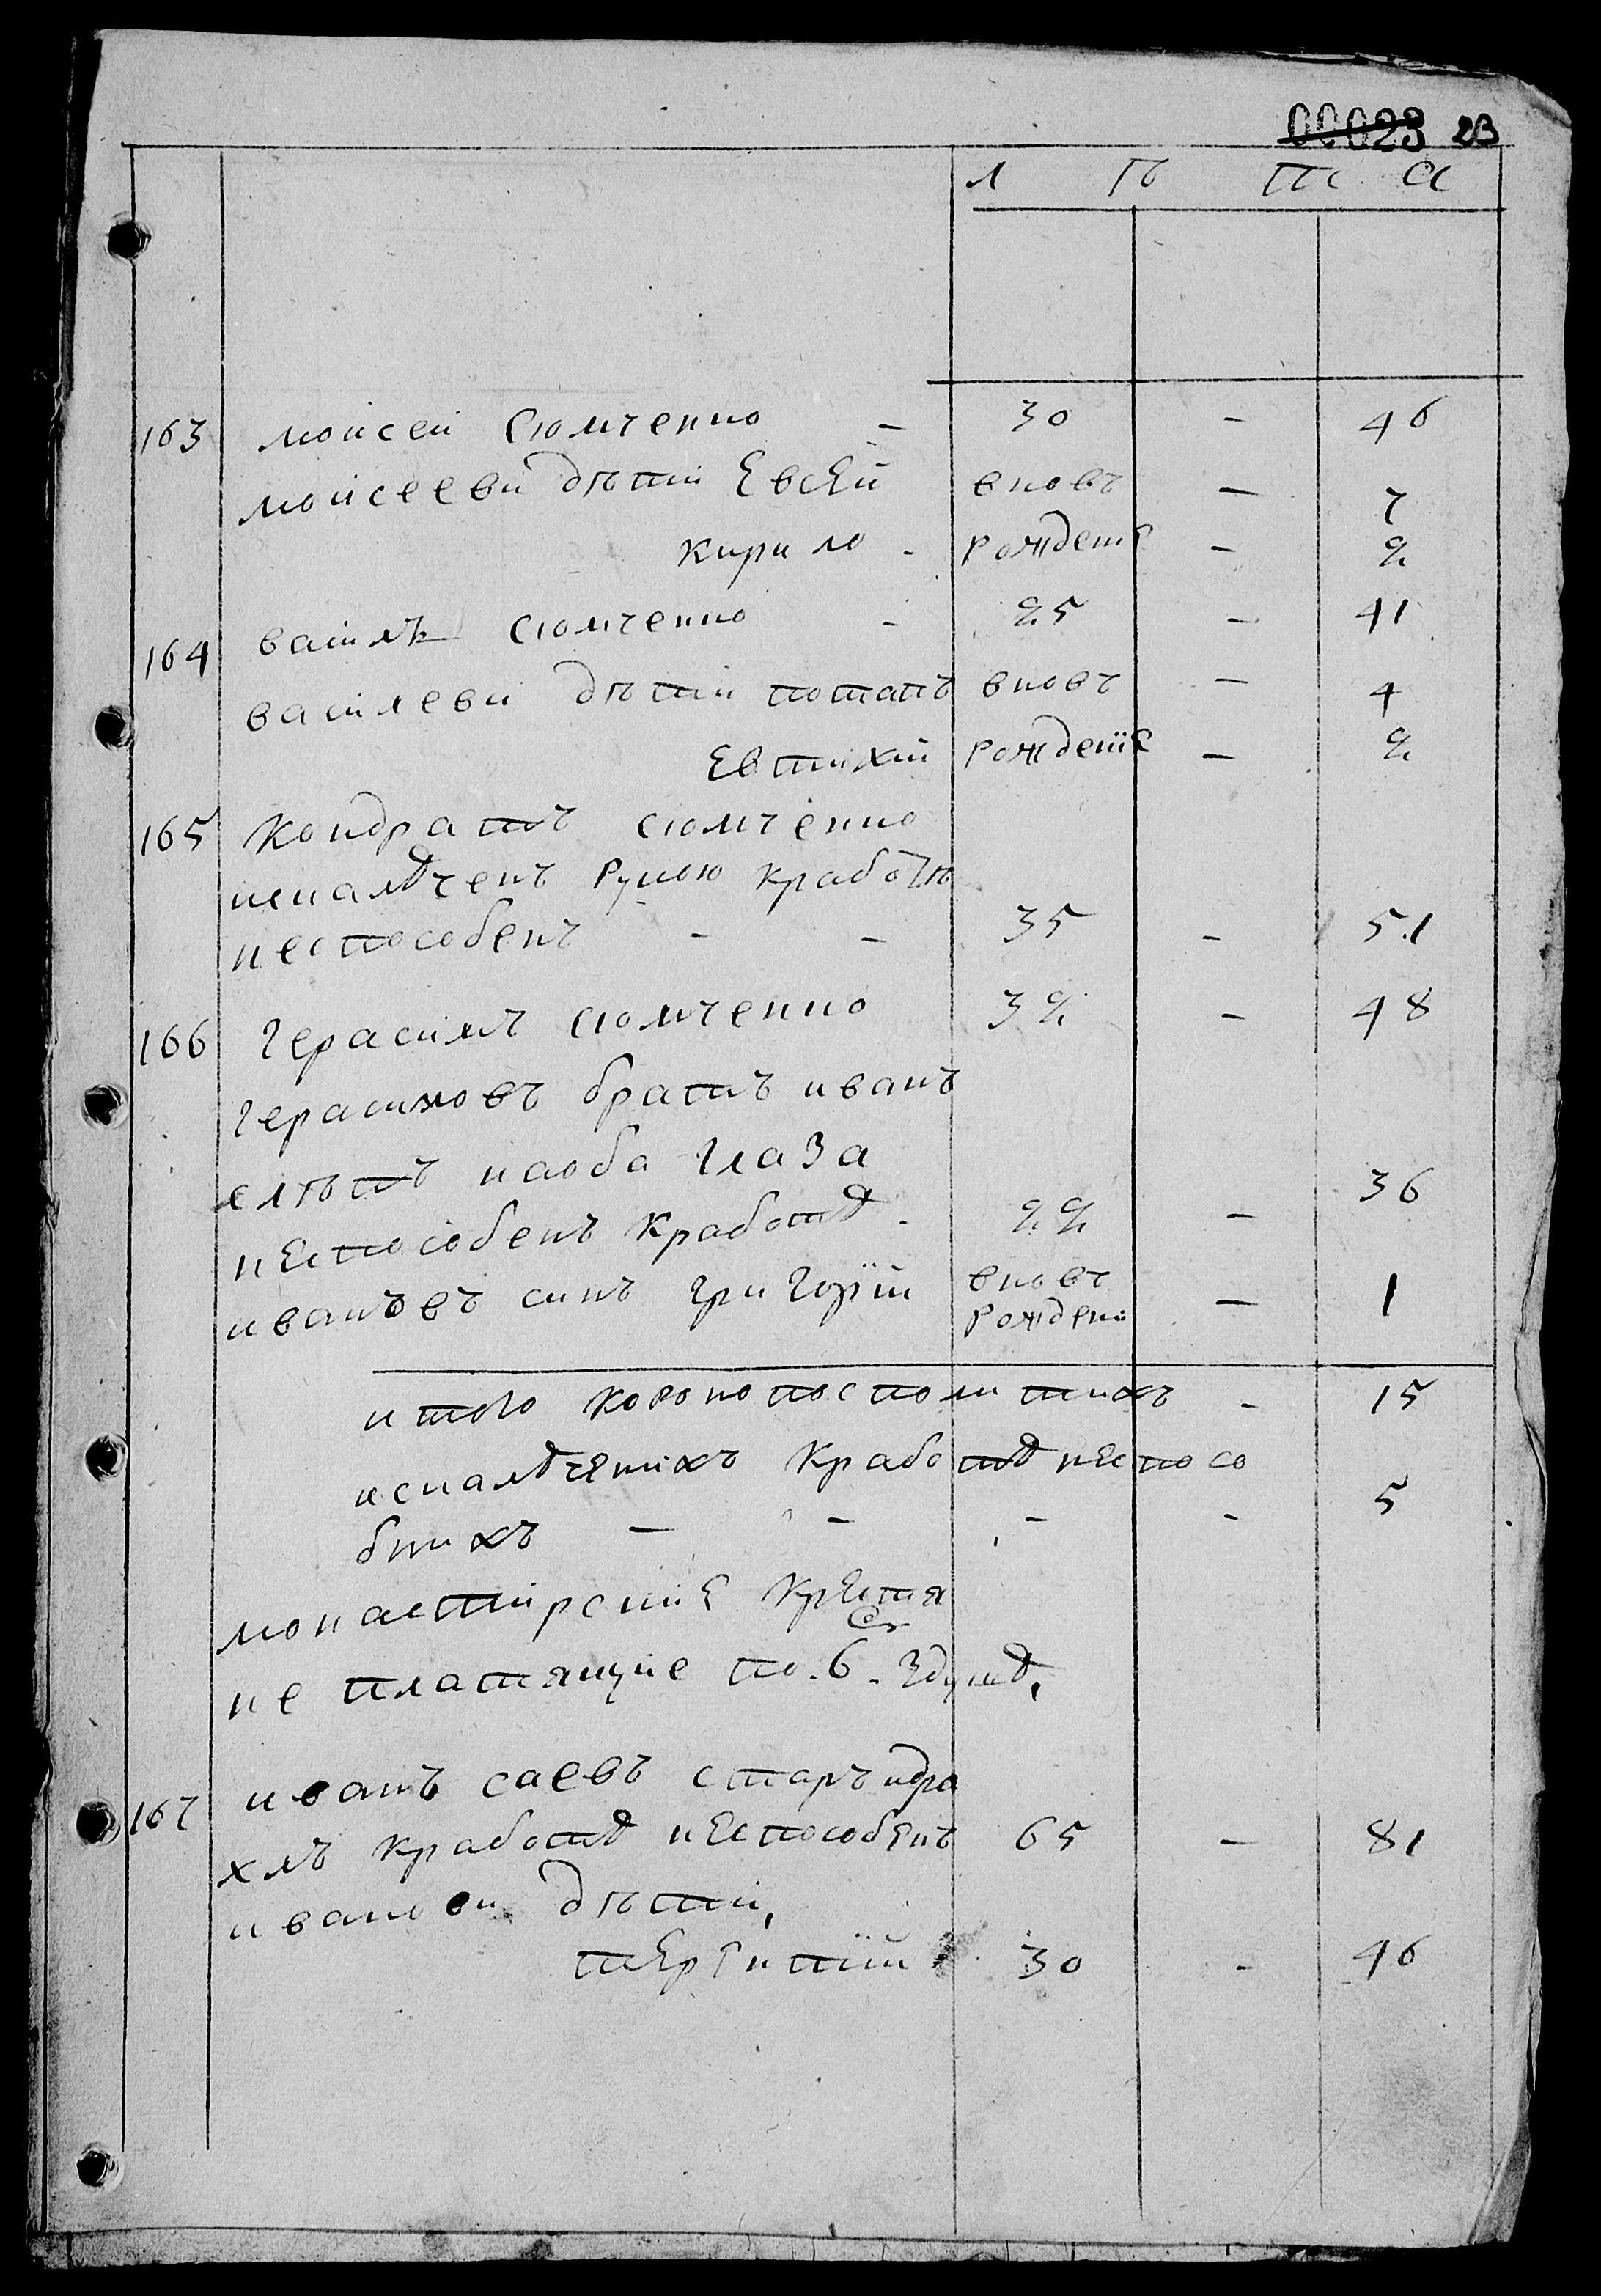 00023 23
л ѣ т а
163 моисеи Сюмченко - 30 - 46
моисееви дѣти Евсей вновь - 7
кирило - рождение - 2
164 василь сюмченко - 25 - 41
василеви дѣти потапъ вновь - 4
Евтихий рождение - 2
165 кондратъ сюмченко
искалѣченъ рукою кработѣ
неспособенъ - - 35 - 51
166 герасимъ сюмченко 32 - 48
герасимовъ братъ иванъ
слѣпъ наоба глаза 36
неспособенъ кработѣ - 22 -
ивановъ синъ григорїй вновь
рождени - 1
итого короно посполитихъ - 15
искалѣченихъ кработѣ неспосо
бнихъ - - - - 5
монастирские крестя
не платящие по 6 здушѣ,
167 иванъ саевъ старъ идря
хлъ кработѣ неспособенъ 65 - 81
иванови дѣти,
терентїй 30 - 46